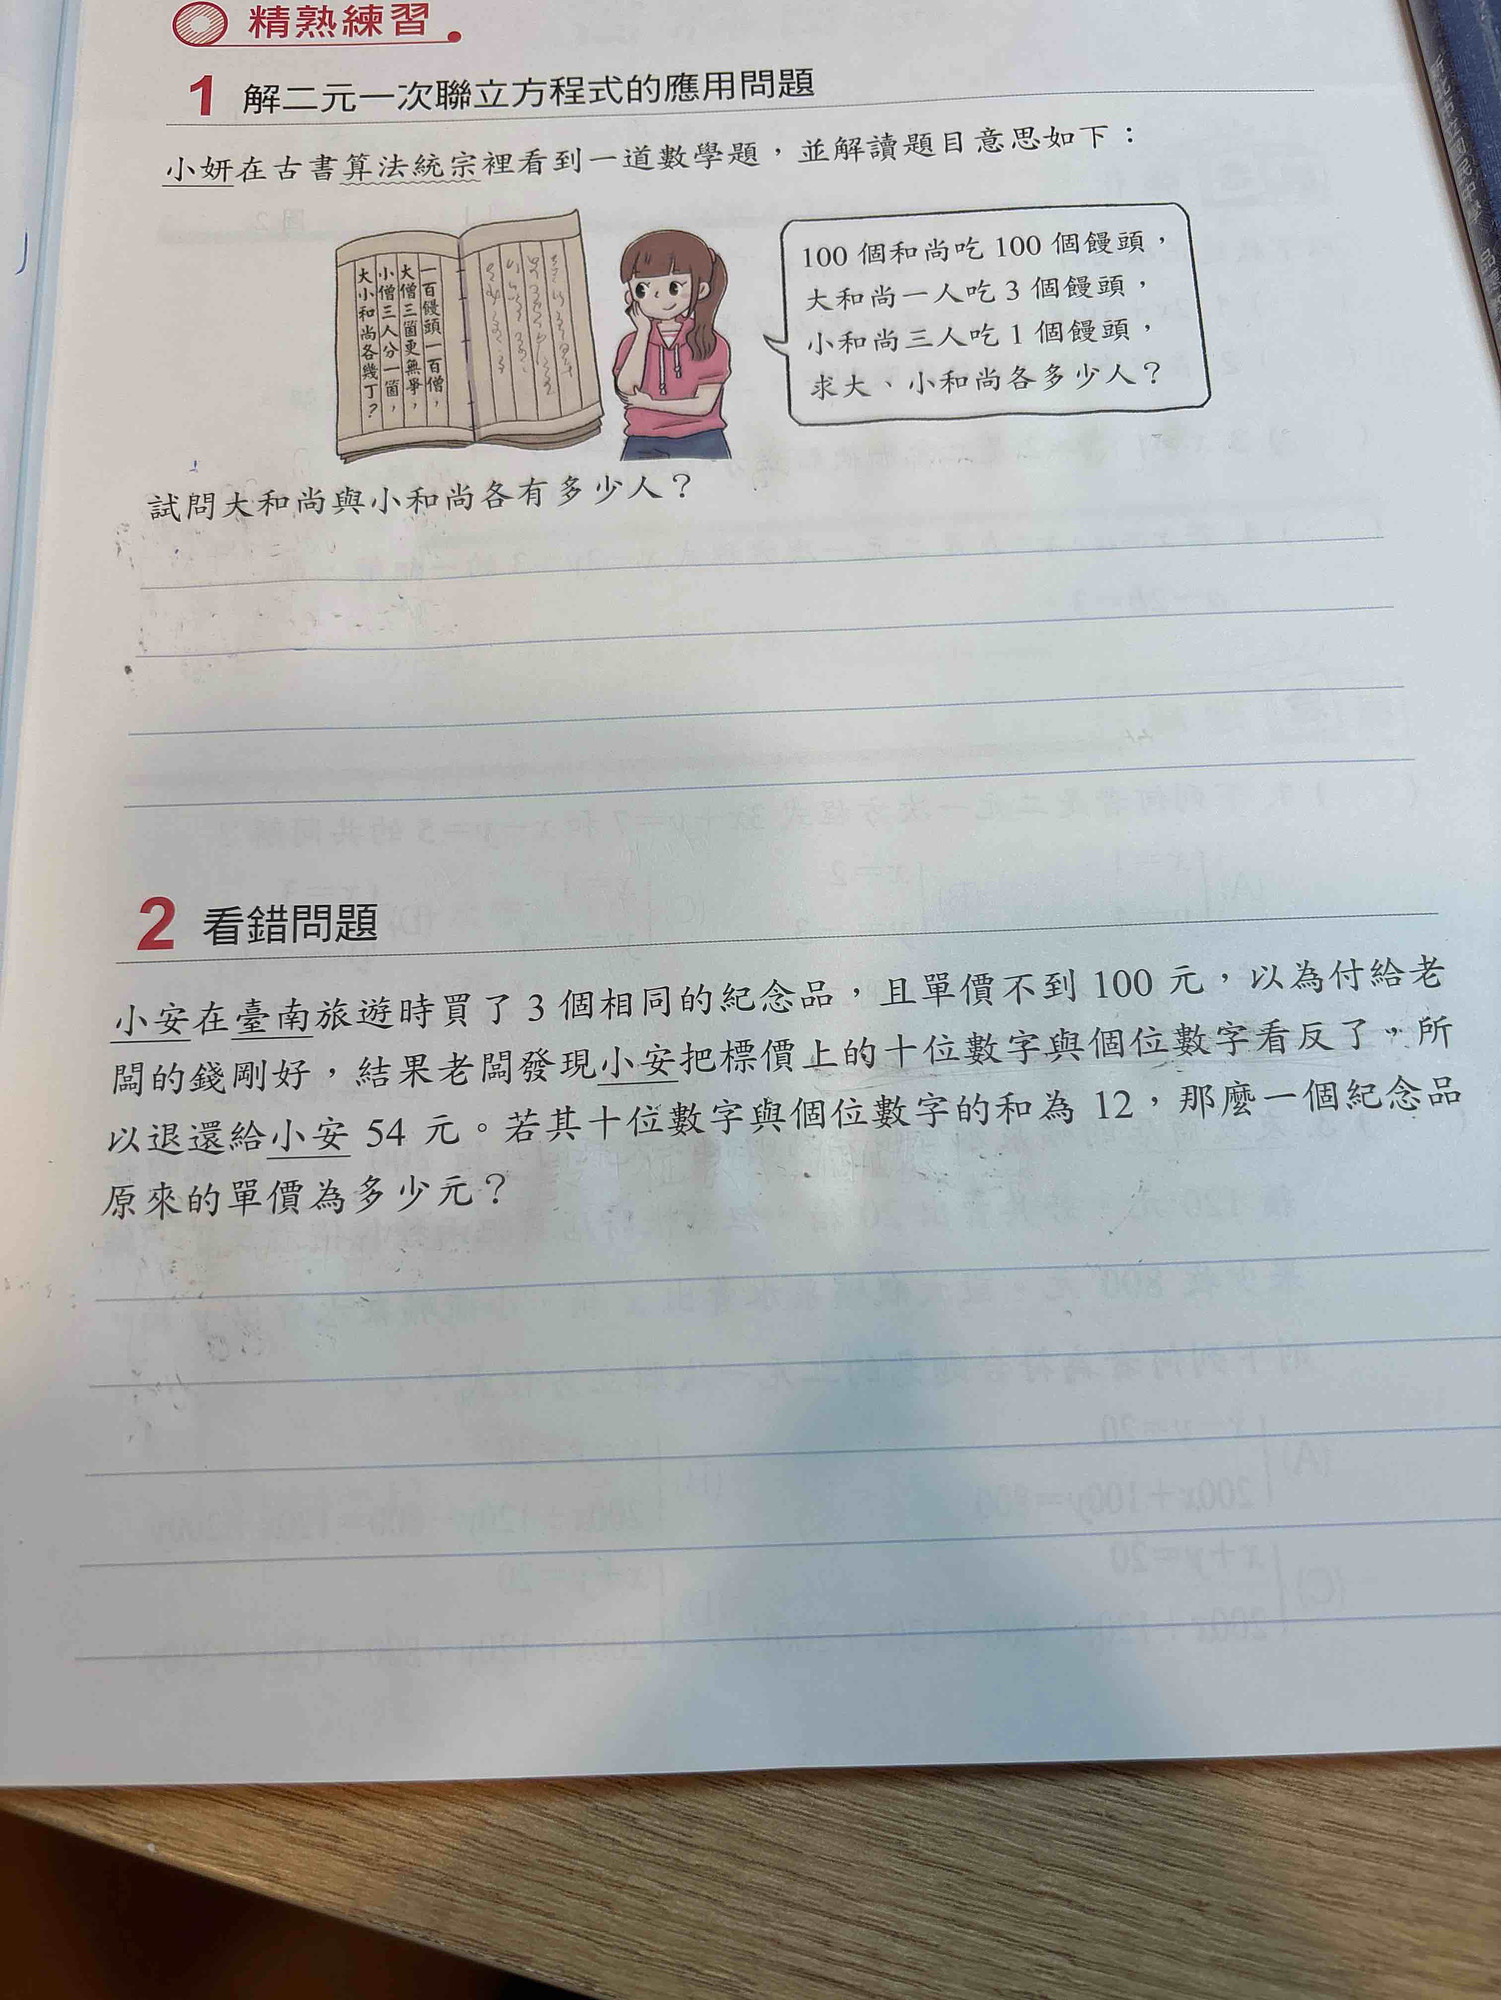 精熟練習
1 解二元一次聯立方程式的應用問題
小妍在古書算法統宗裡看到一道數學題，並解讀題目意思如下：
一百饅頭一百僧，
大僧三箇更無爭，
小僧三人分一箇，
大小和尚各幾丁？
100 個和尚吃 100 個饅頭，
大和尚一人吃 3 個饅頭，
小和尚三人吃 1 個饅頭，
求大、小和尚各多少人？
試問大和尚與小和尚各有多少人？
2 看錯問題
小安在臺南旅遊時買了 3 個相同的紀念品，且單價不到 100 元，以為付給老
闆的錢剛好，結果老闆發現小安把標價上的十位數字與個位數字看反了，所
以退還給小安 54 元。若其十位數字與個位數字的和為 12，那麼一個紀念品
原來的單價為多少元？